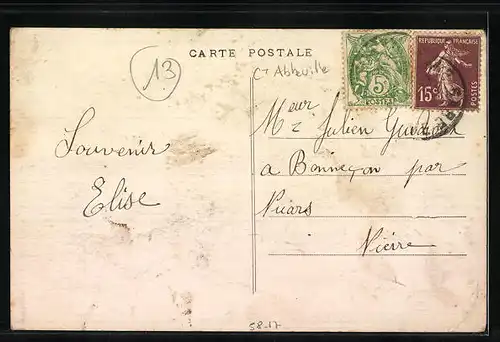 CARTE POSTALE
13
Cn Abbeville
5
POSTES
REPUBLIQUE FRANÇAISE
15c
POSTES
Souvenir
Elise
Mr Julien
a Bonneçon par
Nièvre
58-17